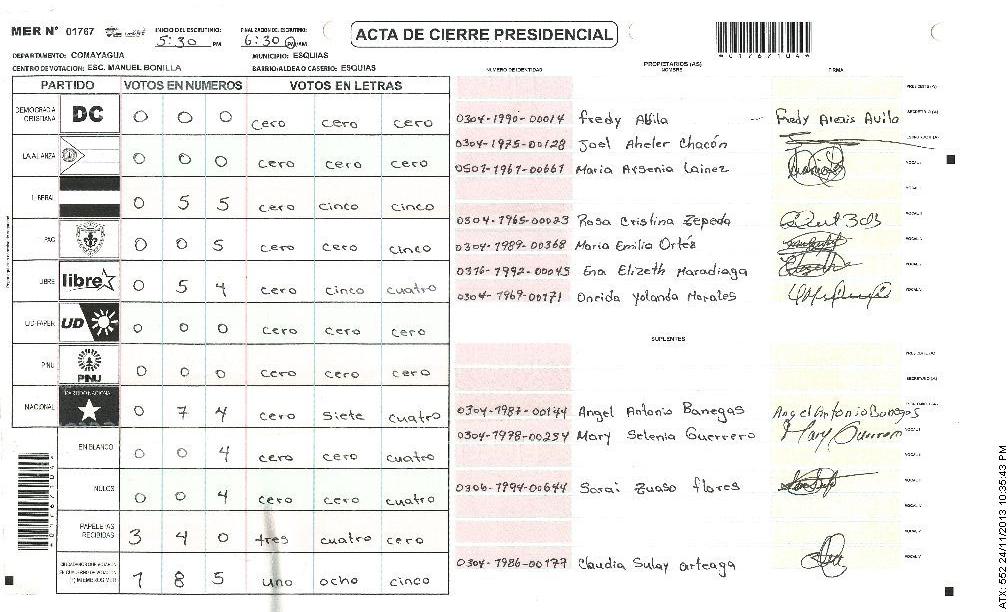 MER Nº 01767 INICIO DEL ESCRUTINIO: 5:30 PM FINALIZACION DEL ESCRUTINIO: 6:30 PM/AM ACTA DE CIERRE PRESIDENCIAL
DEPARTAMENTO: COMAYAGUA MUNICIPIO: ESQUIAS
CENTRO DE VOTACION: ESC. MANUEL BONILLA BARRIO/ALDEA O CASERIO: ESQUIAS
PARTIDO VOTOS EN NUMEROS VOTOS EN LETRAS
DEMOCRACIA CRISTIANA DC 0 0 0 cero cero cero
LA ALIANZA 0 0 0 cero cero cero
LIBERAL 0 5 5 cero cinco cinco
PAC 0 0 5 cero cero cinco
LIBRE libre 0 5 4 cero cinco cuatro
UD-FAPER UD 0 0 0 cero cero cero
PINU PINU 0 0 0 cero cero cero
NACIONAL PARTIDO NACIONAL 0 7 4 cero siete cuatro
EN BLANCO 0 0 4 cero cero cuatro
NULOS 0 0 4 cero cero cuatro
PAPELETAS RECIBIDAS 3 4 0 tres cuatro cero
1 8 5 uno ocho cinco
PROPIETARIOS (AS)
NUMERO DE IDENTIDAD NOMBRE FIRMA
0304-1990-00014 Fredy Abila Fredy Alexis Avila
0304-1975-00128 Joel Aheler Chacón
0501-1967-00661 Maria Arsenia Lainez
0304-1965-00023 Rosa Cristina Zepeda
0304-1989-00368 Maria Emilia Ortés
0316-1992-00045 Ena Elizeth Maradiaga
0304-1969-00171 Oneida Yolanda Morales
SUPLENTES
0304-1987-00144 Angel Antonio Banegas Angel Antonio Banegas
0304-1978-00254 Mary Selenia Guerrero Mary Guerrero
0306-1994-00644 Sarai Zuaso flores
0304-1986-00177 Claudia Sulay arteaga
ATX: 552 24/11/2013 10:35:43 PM